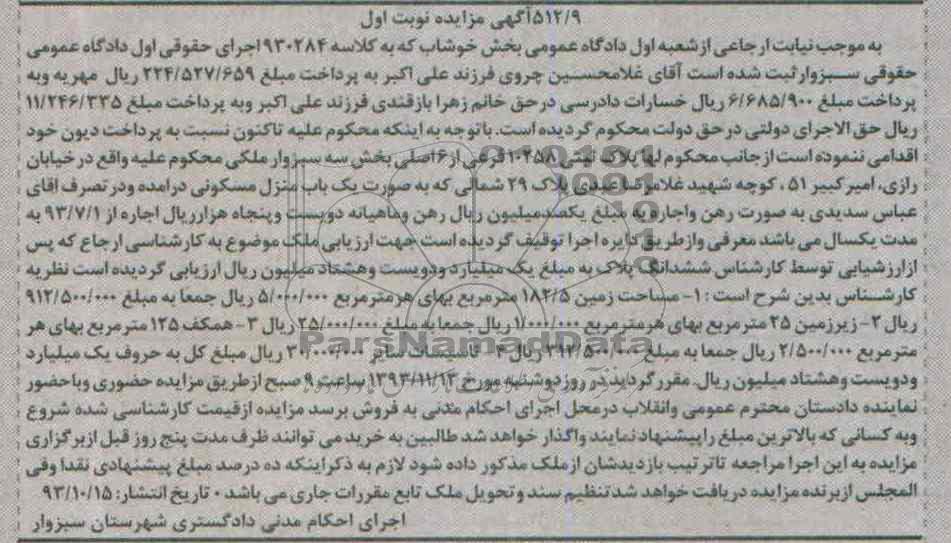 ۵۱۲/۹آگهی مزایده نوبت اول
به موجب نیابت ارجاعی از شعبه اول دادگاه عمومی بخش خوشاب که به کلاسه ۹۳۰۲۸۴ اجرای حقوقی اول دادگاه عمومی
حقوقی سبزوار ثبت شده است آقای غلامحسین چروی فرزند علی اکبر به پرداخت مبلغ ۲۲۴/۵۲۷/۶۵۹ ریال مهریه وبه
پرداخت مبلغ ۶/۶۸۵/۹۰۰ ریال خسارات دادرسی در حق خانم زهرا بازقندی فرزند علی اکبر وبه پرداخت مبلغ ۱۱/۲۴۶/۳۳۵
ریال حق الاجرای دولتی در حق دولت محکوم گردیده است. باتوجه به اینکه محکوم علیه تاکنون نسبت به پرداخت دیون خود
اقدامی ننموده است از جانب محکوم لها پلاک ثبتی ۱۰۲۵۸ فرعی از ۶ اصلی بخش سه سبزوار ملکی محکوم علیه واقع در خیابان
رازی، امیر کبیر ۵۱ ، کوچه شهید غلامرضا عبدی پلاک ۲۹ شمالی که به صورت یک باب منزل مسکونی درامده ودر تصرف اقای
عباس سدیدی به صورت رهن واجاره به مبلغ یکصدمیلیون ریال رهن وماهیانه دویست وپنجاه هزارریال اجاره از ۹۳/۷/۱ به
مدت یکسال می باشد معرفی واز طریق دایره اجرا توقیف گردیده است جهت ارزیابی ملک موضوع به کارشناسی ارجاع که پس
از ارزشیابی توسط کارشناس ششدانگ پلاک به مبلغ یک میلیارد ودویست وهشتاد میلیون ریال ارزیابی گردیده است نظریه
کارشناس بدین شرح است : ۱- مساحت زمین ۱۸۲/۵ مترمربع بهای هرمترمربع ۵/۰۰۰/۰۰۰ ریال جمعا به مبلغ ۹۱۲/۵۰۰/۰۰۰
ریال ۲- زیرزمین ۲۵ مترمربع بهای هرمترمربع ۱/۰۰۰/۰۰۰ ریال جمعا به مبلغ ۲۵/۰۰۰/۰۰۰ ریال ۳- همکف ۱۲۵ مترمربع بهای هر
مترمربع ۲/۵۰۰/۰۰۰ ریال جمعا به مبلغ ۳۱۲/۵۰۰/۰۰۰ ریال ۴- تاسیسات سایر ۳۰/۰۰۰/۰۰۰ ریال مبلغ کل به حروف یک میلیارد
ودویست وهشتاد میلیون ریال. مقرر گردید در روز دوشنبه مورخ ۱۳۹۳/۱۱/۱۳ ساعت ۹ صبح از طریق مزایده حضوری وباحضور
نماینده دادستان محترم عمومی وانقلاب در محل اجرای احکام مدنی به فروش برسد مزایده از قیمت کارشناسی شده شروع
وبه کسانی که بالاترین مبلغ را پیشنهاد نمایند واگذار خواهد شد طالبین به خرید می توانند ظرف مدت پنج روز قبل از برگزاری
مزایده به این اجرا مراجعه تا ترتیب بازدیدشان از ملک مذکور داده شود لازم به ذکر اینکه ده درصد مبلغ پیشنهادی نقدا وفی
المجلس از برنده مزایده دریافت خواهد شد تنظیم سند وتحویل ملک تابع مقررات جاری می باشد ۰ تاریخ انتشار: ۹۳/۱۰/۱۵
اجرای احکام مدنی دادگستری شهرستان سبزوار
ParsNamadData